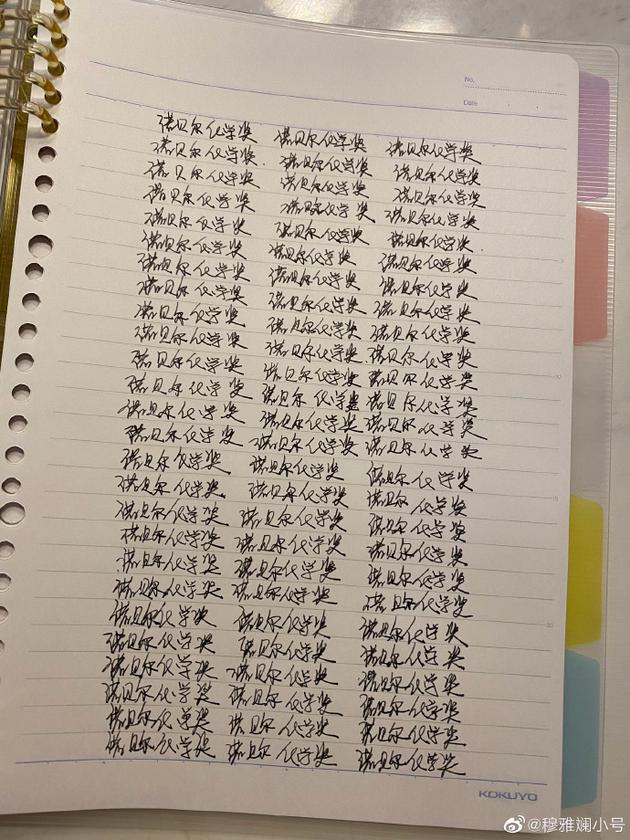 No.
Date
诺贝尔化学奖 诺贝尔化学奖 诺贝尔化学奖
诺贝尔化学奖 诺贝尔化学奖 诺贝尔化学奖
诺贝尔化学奖 诺贝尔化学奖 诺贝尔化学奖
诺贝尔化学奖 诺贝尔化学奖 诺贝尔化学奖
诺贝尔化学奖 诺贝尔化学奖 诺贝尔化学奖
诺贝尔化学奖 诺贝尔化学奖 诺贝尔化学奖
诺贝尔化学奖 诺贝尔化学奖 诺贝尔化学奖
诺贝尔化学奖 诺贝尔化学奖 诺贝尔化学奖
诺贝尔化学奖 诺贝尔化学奖 诺贝尔化学奖
诺贝尔化学奖 诺贝尔化学奖 诺贝尔化学奖
诺贝尔化学奖 诺贝尔化学奖 诺贝尔化学奖
诺贝尔化学奖 诺贝尔化学奖 诺贝尔化学奖
诺贝尔化学奖 诺贝尔化学奖 诺贝尔化学奖
诺贝尔化学奖 诺贝尔化学奖 诺贝尔化学奖
诺贝尔化学奖 诺贝尔化学奖 诺贝尔化学奖
诺贝尔化学奖 诺贝尔化学奖 诺贝尔化学奖
诺贝尔化学奖 诺贝尔化学奖 诺贝尔化学奖
诺贝尔化学奖 诺贝尔化学奖 诺贝尔化学奖
诺贝尔化学奖 诺贝尔化学奖 诺贝尔化学奖
诺贝尔化学奖 诺贝尔化学奖 诺贝尔化学奖
诺贝尔化学奖 诺贝尔化学奖 诺贝尔化学奖
诺贝尔化学奖 诺贝尔化学奖 诺贝尔化学奖
诺贝尔化学奖 诺贝尔化学奖 诺贝尔化学奖
诺贝尔化学奖 诺贝尔化学奖 诺贝尔化学奖
诺贝尔化学奖 诺贝尔化学奖 诺贝尔化学奖
诺贝尔化学奖 诺贝尔化学奖 诺贝尔化学奖
KOKUYO
@穆雅斓小号